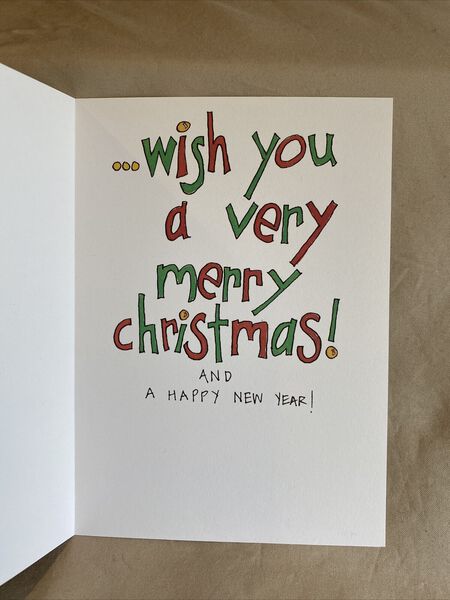 ...wish you
a very
merry
christmas!
AND
A HAPPY NEW YEAR!